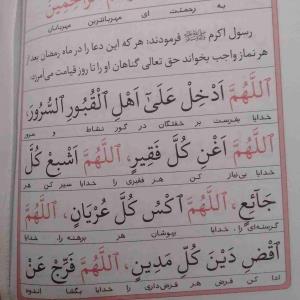 به رحمتت ای مهربانترین مهربانان
رسول اکرم ﷺ فرمودند: هر که این دعا را در ماه رمضان بعد از
هر نماز واجب بخواند حق تعالی گناهان او را تا روز قیامت می‌آمرزد.
اَللّٰهُمَّ اَدْخِلْ عَلىٰ اَهْلِ الْقُبُورِ السُّرُورَ،
خدایا بفرست بر خفتگان در گور نشاط و سرور
اَللّٰهُمَّ اَغْنِ كُلَّ فَقِيرٍ، اَللّٰهُمَّ اَشْبِعْ كُلَّ
خدایا بی‌نیاز کن هر فقیری را خدایا سیر کن هر
جَآئِعٍ، اَللّٰهُمَّ اكْسُ كُلَّ عُرْيَانٍ، اَللّٰهُمَّ
گرسنه‌ای را، خدایا بپوشان هر برهنه را، خدایا
اقْضِ دَيْنَ كُلِّ مَدِينٍ، اَللّٰهُمَّ فَرِّجْ عَنْ
ادا کن قرض هر قرض‌داری را خدایا بگشا اندوه